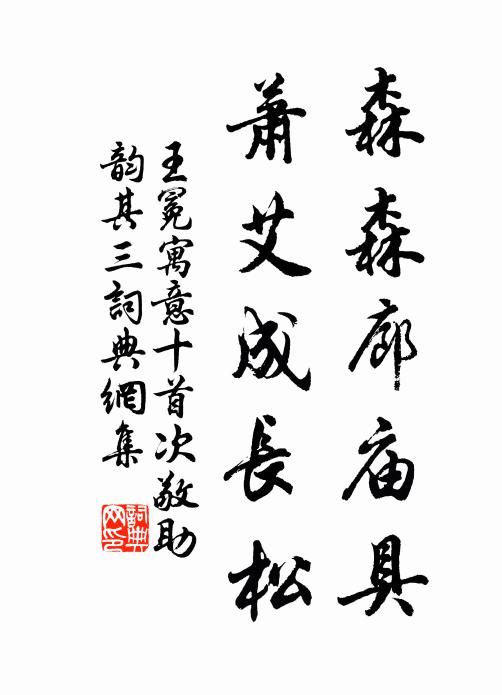 森森廊庙具
蕭艾成長松
王冕寓意十首次敬助
韵其三詞典網集
詞典网印